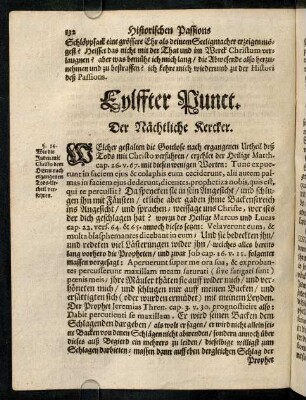 132 Historischen Passions
Schlöpfsack eine grössere Ehr als deinem Seeligmacher erzeigen mügest? Heisset das nicht mit der That und im Werck Christum verlaugnen? aber was bemühe ich mich lang / die Abwesende also herzunehmen und zu bestraffen? ich kehre mich wiederum zu der Histori
deß Passions.
Eylffter Punct.
Der Nächtliche Kercker.
§. 24.
Wie die
Juden mit
Christo dem
Herrn nach
ergangenem
Tods-Urtheil verfahren.
WElcher gestalten die Gottlose nach ergangenen Urtheil deß
Tods mit Christo verfahren / erzehlet der Heilige Matth.
cap. 26. v. 67. mit diesen wenigen Worten: Tunc expuerunt
in faciem ejus & colaphis eum ceciderunt, alii autem palmas
in faciem ejus dederunt, dicentes, prophetiza nobis, quis est,
qui te percussit? Da speyeten sie in sein Angesicht / und schlugen
ihn mit Fäusten / etliche aber gaben ihme Backenstreich
ins Angesicht / und sprachen / weissage uns Christe / wer ists
der dich geschlagen hat? worzu der Heilige Marcus und Lucas
cap. 22. vers. 64. & 65. annoch dieses setzet: Velaverunt eum, &
multa blasphemantes dicebant in eum / Und sie bedeckten ihn /
und redeten viel Lästerungen wider ihn / welches alles bereits
lang vorhero die Propheten / und zwar Job cap. 16. v. 11. folgender
massen vorgesagt: Aperuerunt super me ora sua, & exprobrantes
percusserunt maxillam meam saturati (sive satigati sunt)
pœnis meis / ihre Mäuler thäten sie auff wider mich / und verhöneten
mich / und schlugen mir auff meinen Backen / und
ersättigten sich (oder wurden ermüdet) mit meinem Leyden.
Der Prophet Jeremias Thren. cap. 3. v. 30. prognosticirt also:
Dabit percutienti se maxillam. Er wird seinen Backen dem
Schlagenden dargeben / als wolt er sagen / er wird nicht allein seine
Backen von denen Schlägen nicht abwenden / sondern annoch über
dieses auß Begierd ein mehrers zu leiden / dieselbige williglich zum
Schlagen darbieten; massen dann auff eben dergleichen Schlag der
Prophet